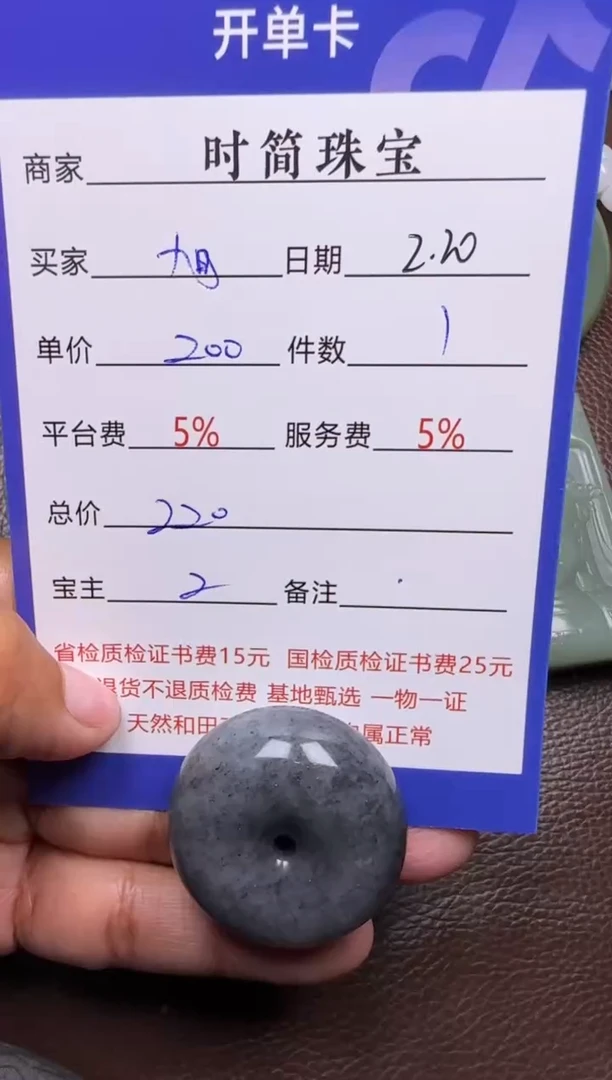 开单卡
商家 时简珠宝
买家 旭 日期 2.20
单价 200 件数 1
平台费 5% 服务费 5%
总价 220
宝主 2 备注
省检质检证书费15元 国检质检证书费25元
退货不退质检费 基地甄选 一物一证
天然和田 属正常